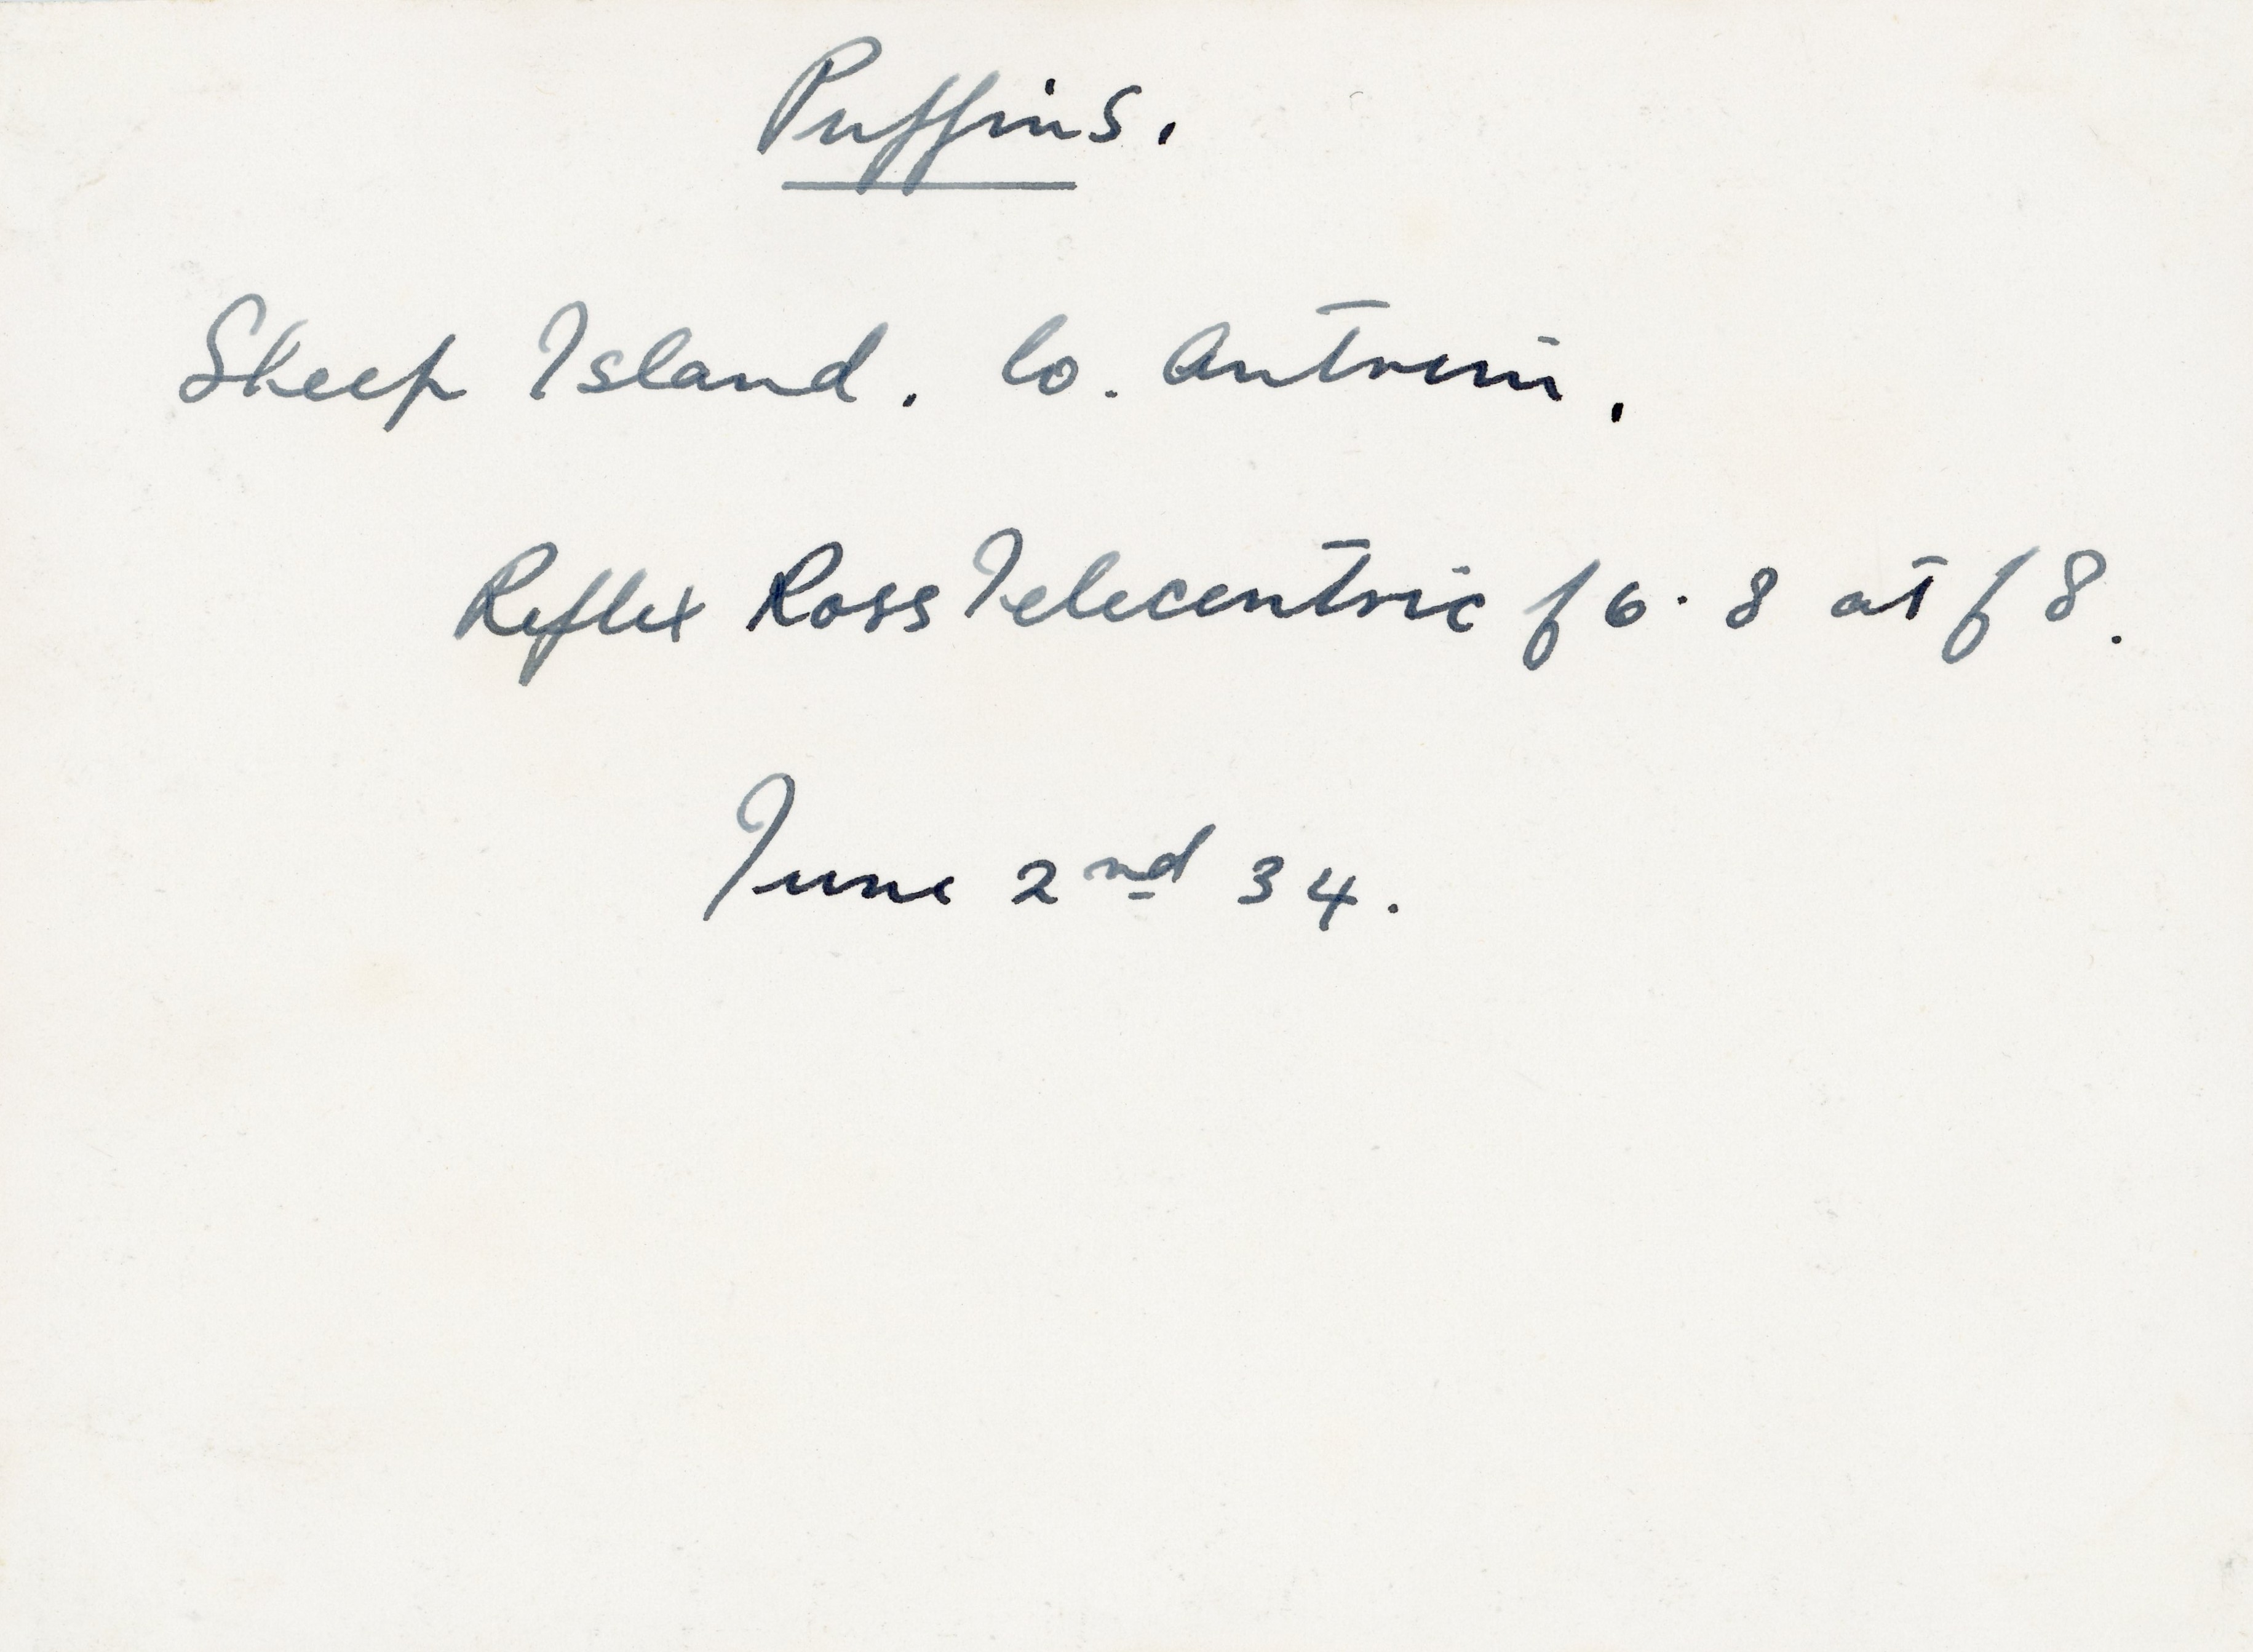 Puffins.
Sheep Island. Co. Antrim.
Reflex Ross Telecentric f6.8 at f8.
June 2nd 34.